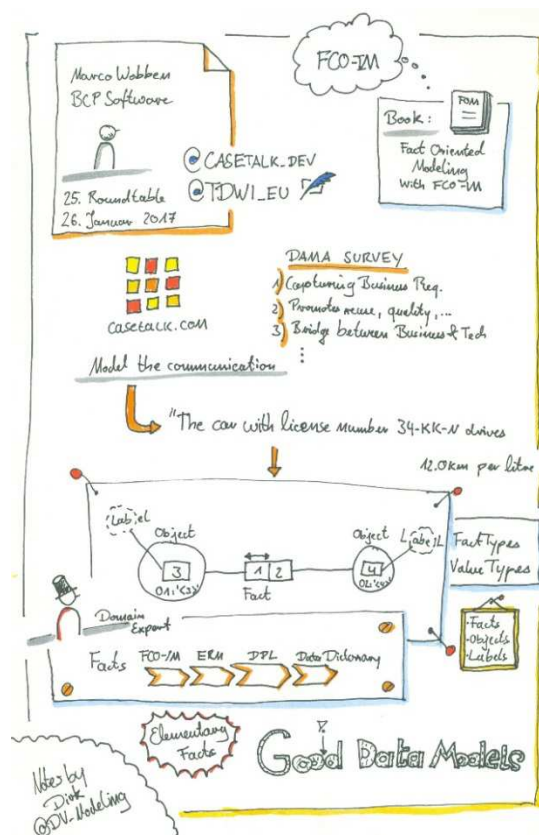 Marco Wobben
BCP Software
25. Roundtable
26. Januar 2017
FCO-IM
@CASETALK_DEV
@TDWI_EU
FOM
Book:
Fact Oriented
Modeling
With FCO-IM
CASETALK.COM
DAMA SURVEY
1) Capturing Business Req.
2) Promotes reuse, quality,...
3) Bridge between Business & Tech
⋮
Model the communication
"The car with license number 34-KK-N drives
12.0km per litre
Label
Object
3
1
2
Fact
Object
4
Label
Fact Types
Value Types
Domain
Expert
Facts
FCO-IM
ERM
Data Dictionary
·Facts
·Objects
·Labels
Elementary
Facts
Good Data Models
Notes by
Dirk
@DV_Modeling